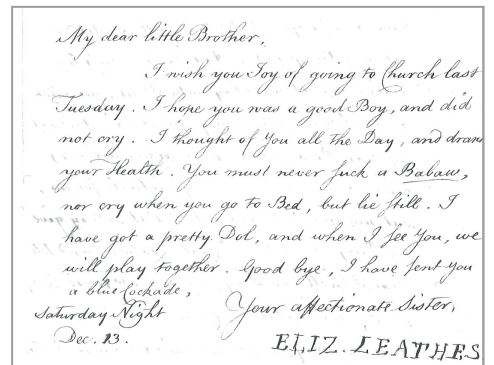 My dear little Brother,
I wish you Joy of going to Church last
Tuesday. I hope you was a good Boy, and did
not cry. I thought of You all the Day, and dran
your Health. You must never suck a Babaw,
nor cry when you go to Bed, but lie still. I
have got a pretty Dol, and when I see You, we
will play together. Good bye, I have sent you
a blue Cockade,
Your affectionate Sister,
Saturday Night
Dec. 13.
ELIZ. LEATHES